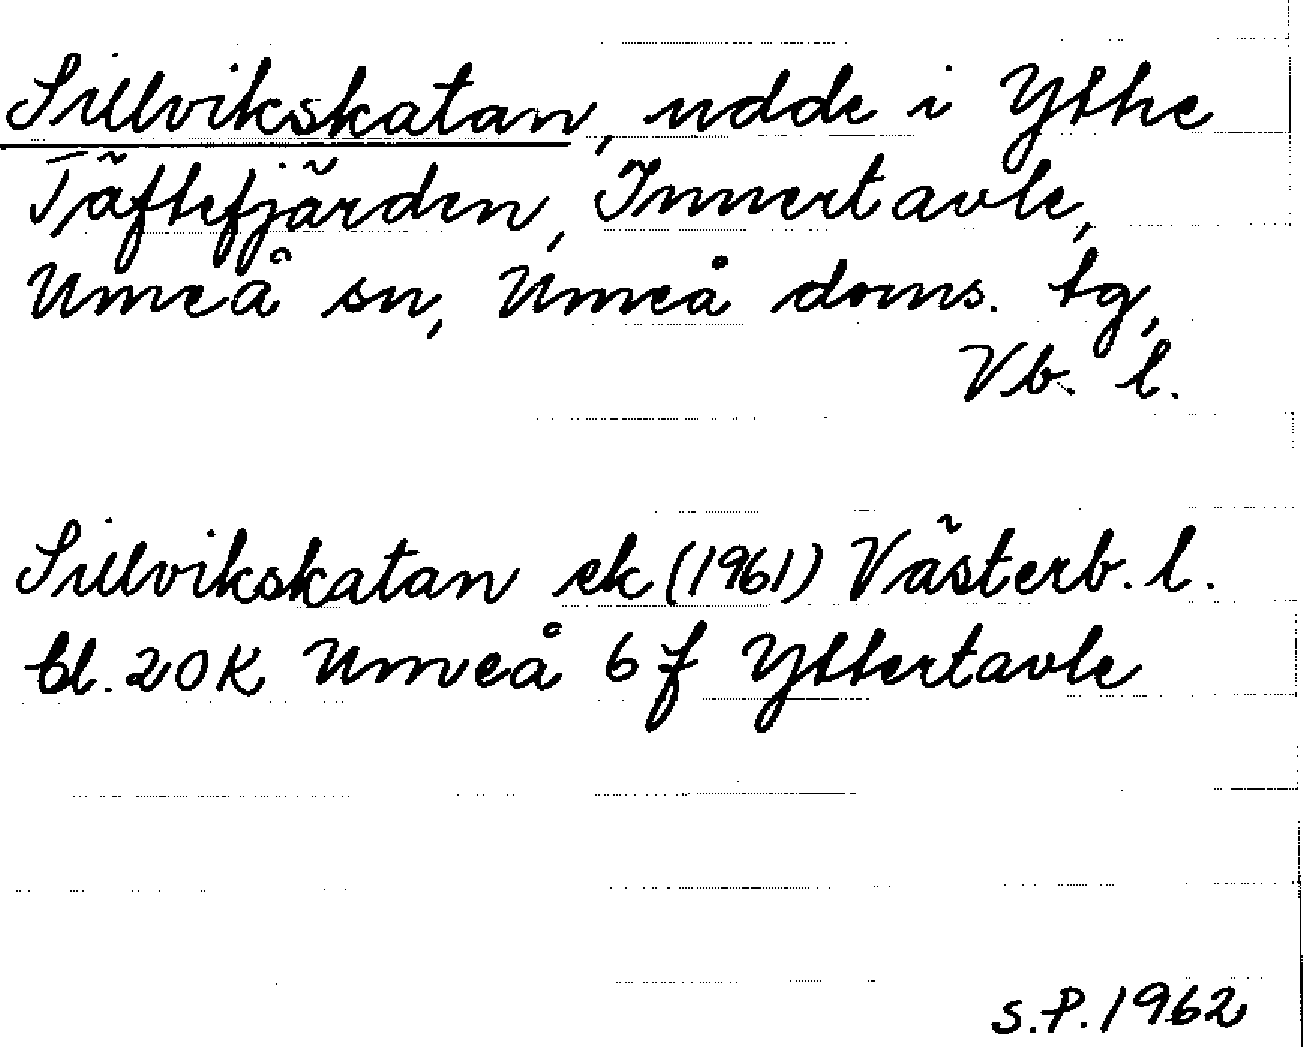 Sillvikskatan, udde i Ytre
Täftefjärden, Innertavle,
Umeå sn, Umeå doms. tg,
Vb. l.
Sillvikskatan ek (1961) Västerb. l.
bl. 20K Umeå 6f Yttertavle
S.P. 1962